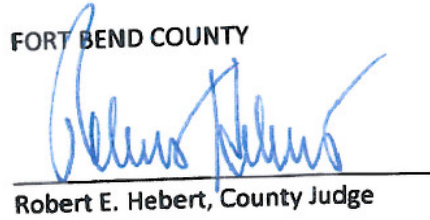 FORT BEND COUNTY
Robert E. Hebert, County Judge